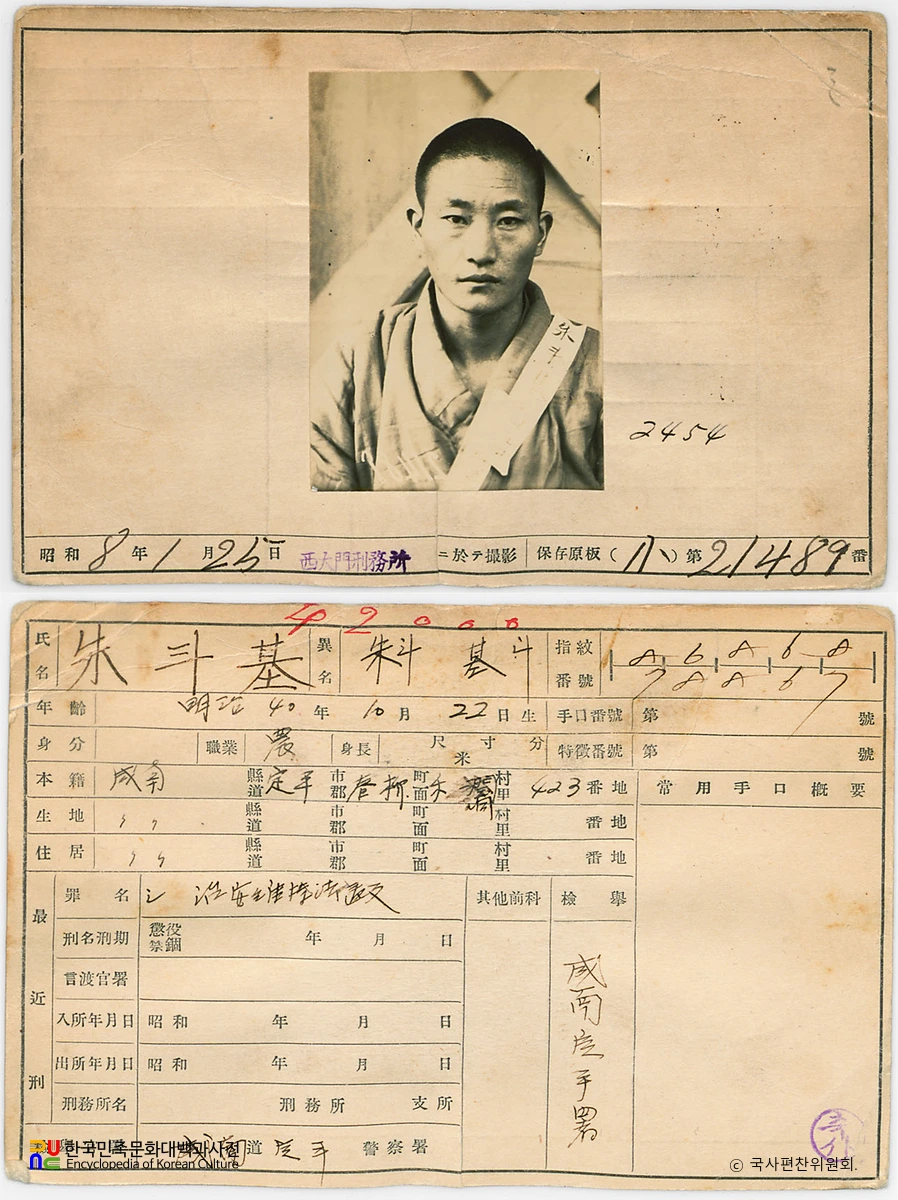 朱斗
2454
昭和 8 年 1 月 25 日 西大門刑務所 ニ於テ撮影 保存原板 ( 小 ) 第 21489 番
42000
氏名 朱 斗 基 異名 指紋番號
年齡 明治 40 年 10 月 22 日生 手口番號 第 號
身分 職業 農 身長 尺 寸 分 米 特徵番號 第 號
本籍 咸南 縣道 定平 市郡 春柳 町面 村里 423 番地 常用手口槪要
生地 〃 〃 縣道 市郡 町面 村里 番地
住居 〃 〃 縣道 市郡 町面 村里 番地
最近刑
罪名 治安維持法 其他前科 檢擧
刑名刑期 懲役 禁錮 年 月 日
言渡官署
咸南定平署
入所年月日 昭和 年 月 日
出所年月日 昭和 年 月 日
刑務所名 刑務所 支所
咸南 道 定平 警察署
한국민족문화대백과사전
Encyclopedia of Korean Culture
© 국사편찬위원회.